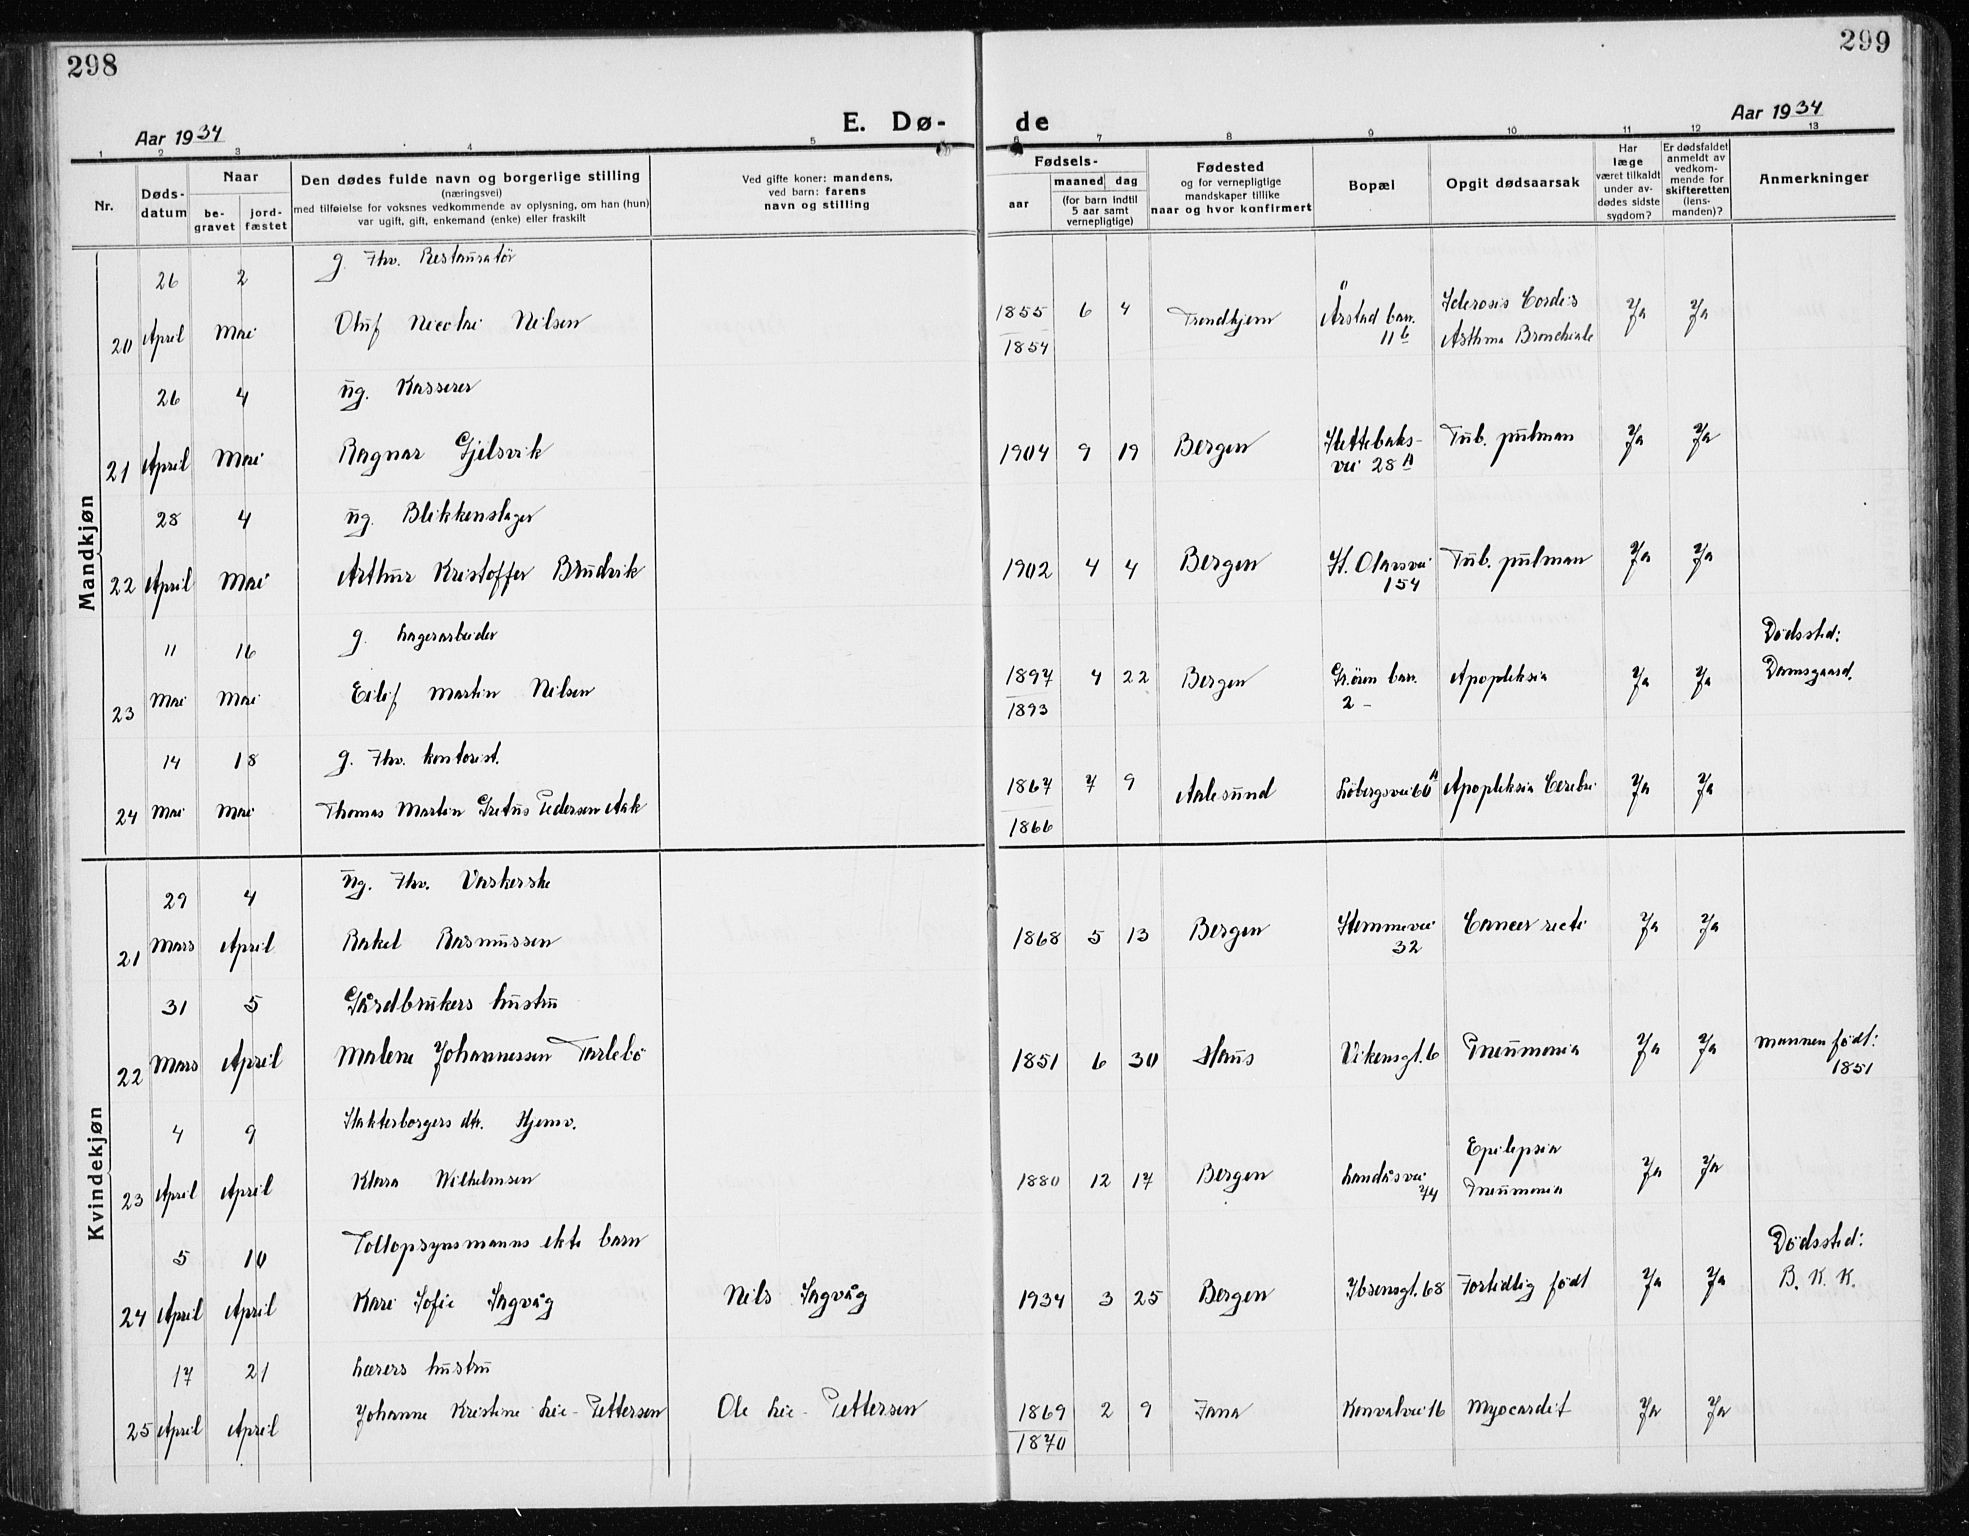 298
299
E. Dø-
de
Aar 1934
Aar 1934
1 2 3 4 5 6 7 8 9 10 11 12 13
Nr.
Døds-
datum
Naar
be-
gravet
jord-
fæstet
Den dødes fulde navn og borgerlige stilling
(næringsvei)
med tilføielse for voksnes vedkommende av oplysning, om han (hun)
var ugift, gift, enkemand (enke) eller fraskilt
Ved gifte koner: mandens,
ved barn: farens
navn og stilling
Fødsels-
aar
maaned
dag
(for barn indtil
5 aar samt
vernepligtige)
Fødested
og for vernepligtige
mandskaper tillike
naar og hvor konfirmert
Bopæl
Opgit dødsaarsak
Har
læge
været tilkaldt
under av-
dødes sidste
sygdom?
Er dødsfaldet
anmeldt av
vedkom-
mende for
skifteretten
(lens-
manden)?
Anmerkninger
Mandkjøn
26 2 g. Fhv. Restauratør
20 April Mai Oluf Nicolai Nilsen 1855 6 4 Trondhjem Årstad ban. Sclerosis Cordis Ja Ja
1854 11 b Asthma Bronchiale
26 4 ug. Kasserer
21 April Mai Ragnar Gjelsvik 1904 9 19 Bergen Slettebaks- Tub. pulman Ja Ja
vei 28 A
28 4 ug. Blikkenslager
22 April Mai Arthur Kristoffer Brudvik 1902 4 4 Bergen St. Olavsvei Tub. pulman Ja Ja
154
11 16 g. Lagerarbeider Dødssted:
23 Mai Mai Eilif Martin Nilsen 1897 4 22 Bergen ban. Apopleksia Ja Ja Damsgaard.
1893 2 -
14 18 g. Fhv. kontorist.
24 Mai Mai Thomas Martin Gretus Pedersen Aak 1867 7 9 Aalesund Løbergsvei 60 A Apopleksia Cerebri Ja Ja
1866
Kvindekjøn
29 4 ug. Fhv. Vaskerske
21 Mars April Rakel Rasmussen 1868 5 13 Bergen Stemmevei Cancer recti Ja Ja
32
31 5 Gårdbrukers hustru
22 Mars April Malene Johannessen Tarlebø 1851 6 30 Haus Vikensgt. 6 Pneumonia Ja Ja Mannen født:
1851
4 9 Slakterborgers dtr. Hjemv. Epilepsia
23 April April Klara Wilhelmsen 1880 12 17 Bergen Landåsvei Pneumonia Ja Ja
74
5 10 Tollopsynsmanns ekte barn Dødssted:
24 April April Kari Sofie Sagvåg Nils Sagvåg 1934 3 25 Bergen Ibsensgt. 68 Fortidlig født Ja Ja B. K. K.
17 21 Lærers hustru
25 April April Johanne Kristine Lie-Pettersen Ole Lie-Pettersen 1869 2 9 Fana Konvalvei 16 Myocardit Ja Ja
1870